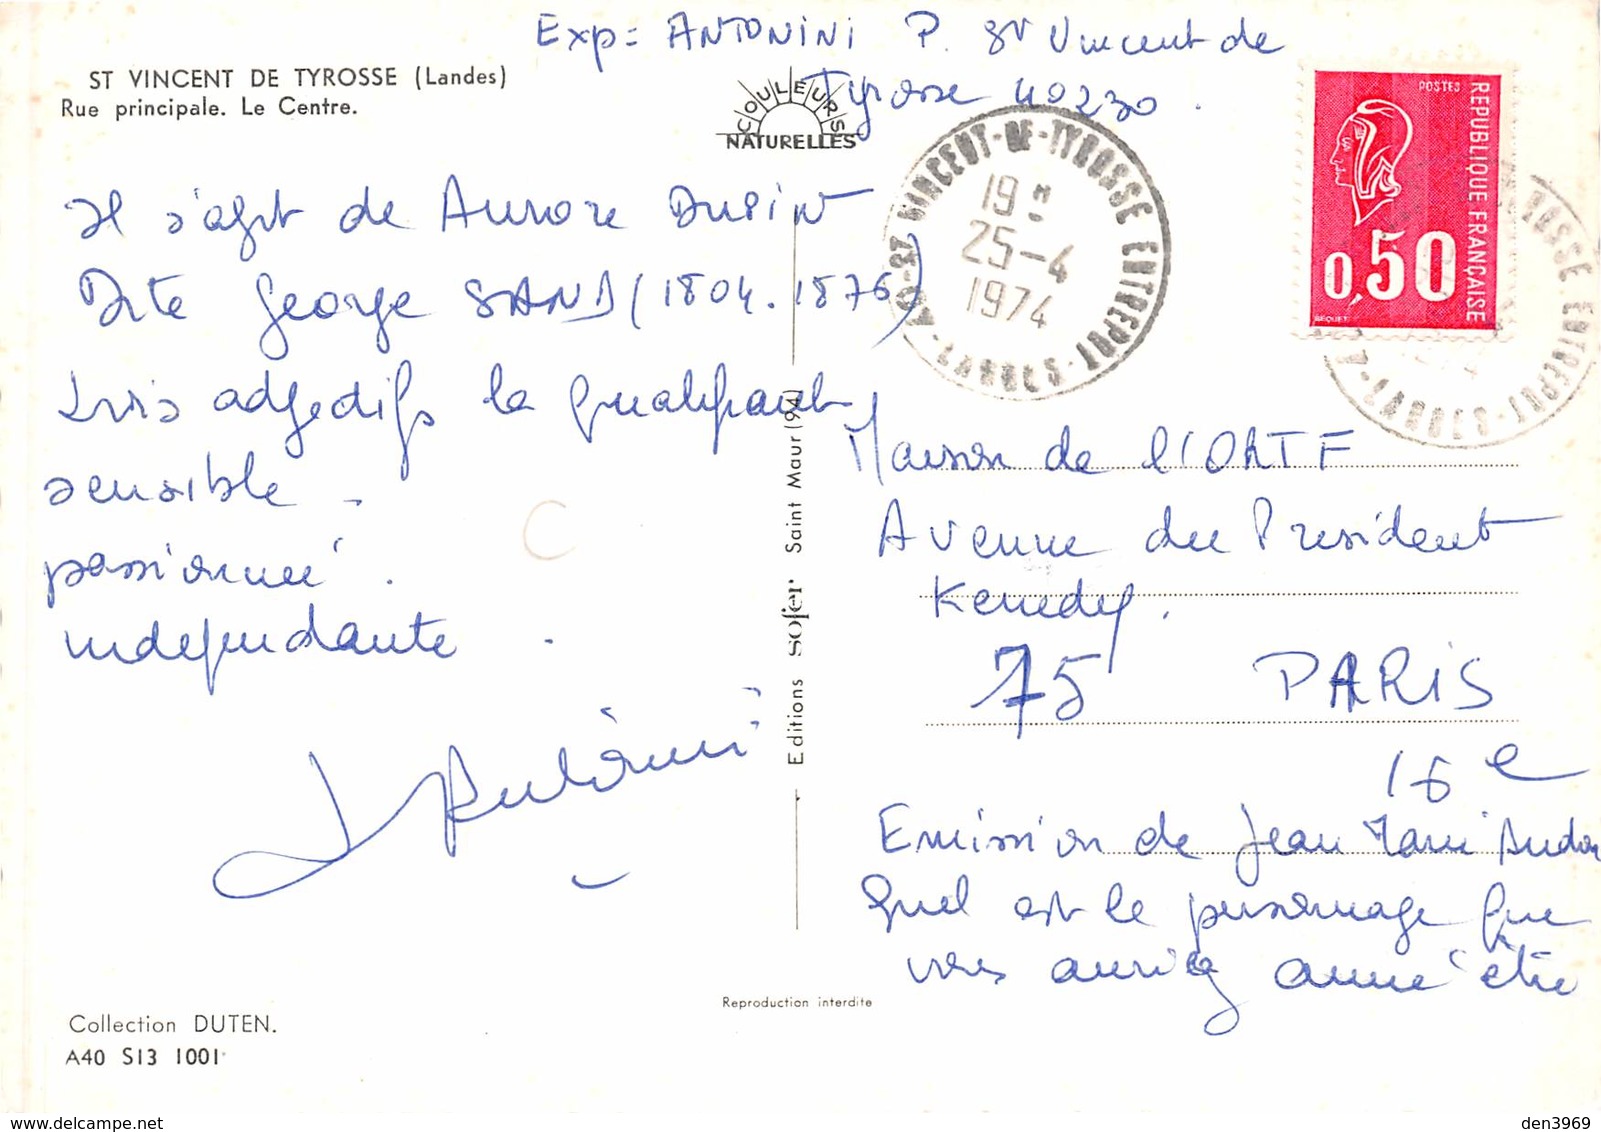 Exp = ANTONINI P. St Vincent de
Tyrosse 40230.
ST VINCENT DE TYROSSE (Landes)
Rue principale. Le Centre.
COULEURS
NATURELLES
40-ST VINCENT-DE-TYROSSE ENTREPOT-LANDES-
19H
25-4
1974
POSTES
REPUBLIQUE FRANÇAISE
0,50
BEQUET
Il s'agit de Aurore DUPIN
Dite George SAND (1804.1876)
Trois adjectifs la qualifiant
sensible.
passionnée.
indépendante.
Antonini
Editions sofer Saint Maur (94)
Maison de l'ORTF
Avenue du President
Kenedy.
75 PARIS
16e
Emission de Jean Marie Audon
Quel est le personnage que
vous auriez aimé être
Reproduction interdite
Collection DUTEN.
A40 S13 1001
den3969